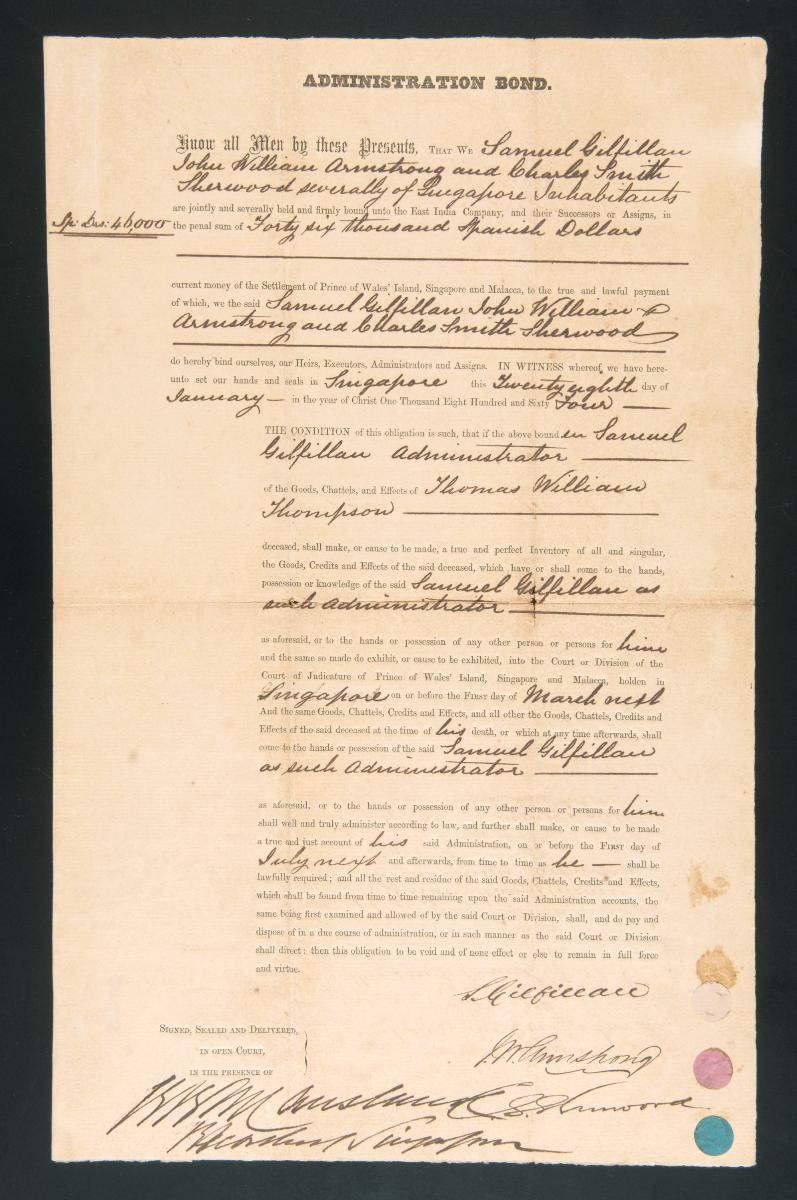 ADMINISTRATION BOND.
Know all Men by these Presents, THAT WE Samuel Gilfillan
John William Armstrong and Charles Smith
Sherwood severally of Singapore Inhabitants
are jointly and severally held and firmly bound unto the East India Company, and their Successors or Assigns, in
Sp: Drs: 46,000 the penal sum of Forty six thousand Spanish Dollars
current money of the Settlement of Prince of Wales' Island, Singapore and Malacca, to the true and lawful payment
of which, we the said Samuel Gilfillan John William
Armstrong and Charles Smith Sherwood
do hereby bind ourselves, our Heirs, Executors, Administrators and Assigns. IN WITNESS whereof, we have here-
unto set our hands and seals in Singapore this Twenty eighth day of
January in the year of Christ One Thousand Eight Hundred and Sixty Four
THE CONDITION of this obligation is such, that if the above bounden Samuel
Gilfillan Administrator
of the Goods, Chattels, and Effects of Thomas William
Thompson
deceased, shall make, or cause to be made, a true and perfect Inventory of all and singular,
the Goods, Credits and Effects of the said deceased, which have or shall come to the hands,
possession or knowledge of the said Samuel Gilfillan as
such Administrator
as aforesaid, or to the hands or possession of any other person or persons for him
and the same so made do exhibit, or cause to be exhibited, into the Court or Division of the
Court of Judicature of Prince of Wales' Island, Singapore and Malacca, holden in
Singapore on or before the FIRST day of March next
And the same Goods, Chattels, Credits and Effects, and all other the Goods, Chattels, Credits and
Effects of the said deceased at the time of his death, or which at any time afterwards, shall
come to the hands or possession of the said Samuel Gilfillan
as such Administrator
as aforesaid, or to the hands or possession of any other person or persons for him
shall well and truly administer according to law, and further shall make, or cause to be made
a true and just account of his said Administration, on or before the FIRST day of
July next and afterwards, from time to time as he shall be
lawfully required; and all the rest and residue of the said Goods, Chattels, Credits and Effects,
which shall be found from time to time remaining upon the said Administration accounts, the
same being first examined and allowed of by the said Court or Division, shall, and do pay and
dispose of in a due course of administration, or in such manner as the said Court or Division
shall direct: then this obligation to be void and of none effect or else to remain in full force
and virtue.
S. Gilfillan
J. W. Armstrong
SIGNED, SEALED AND DELIVERED,
IN OPEN COURT,
IN THE PRESENCE OF
C. S. Sherwood
Singapore